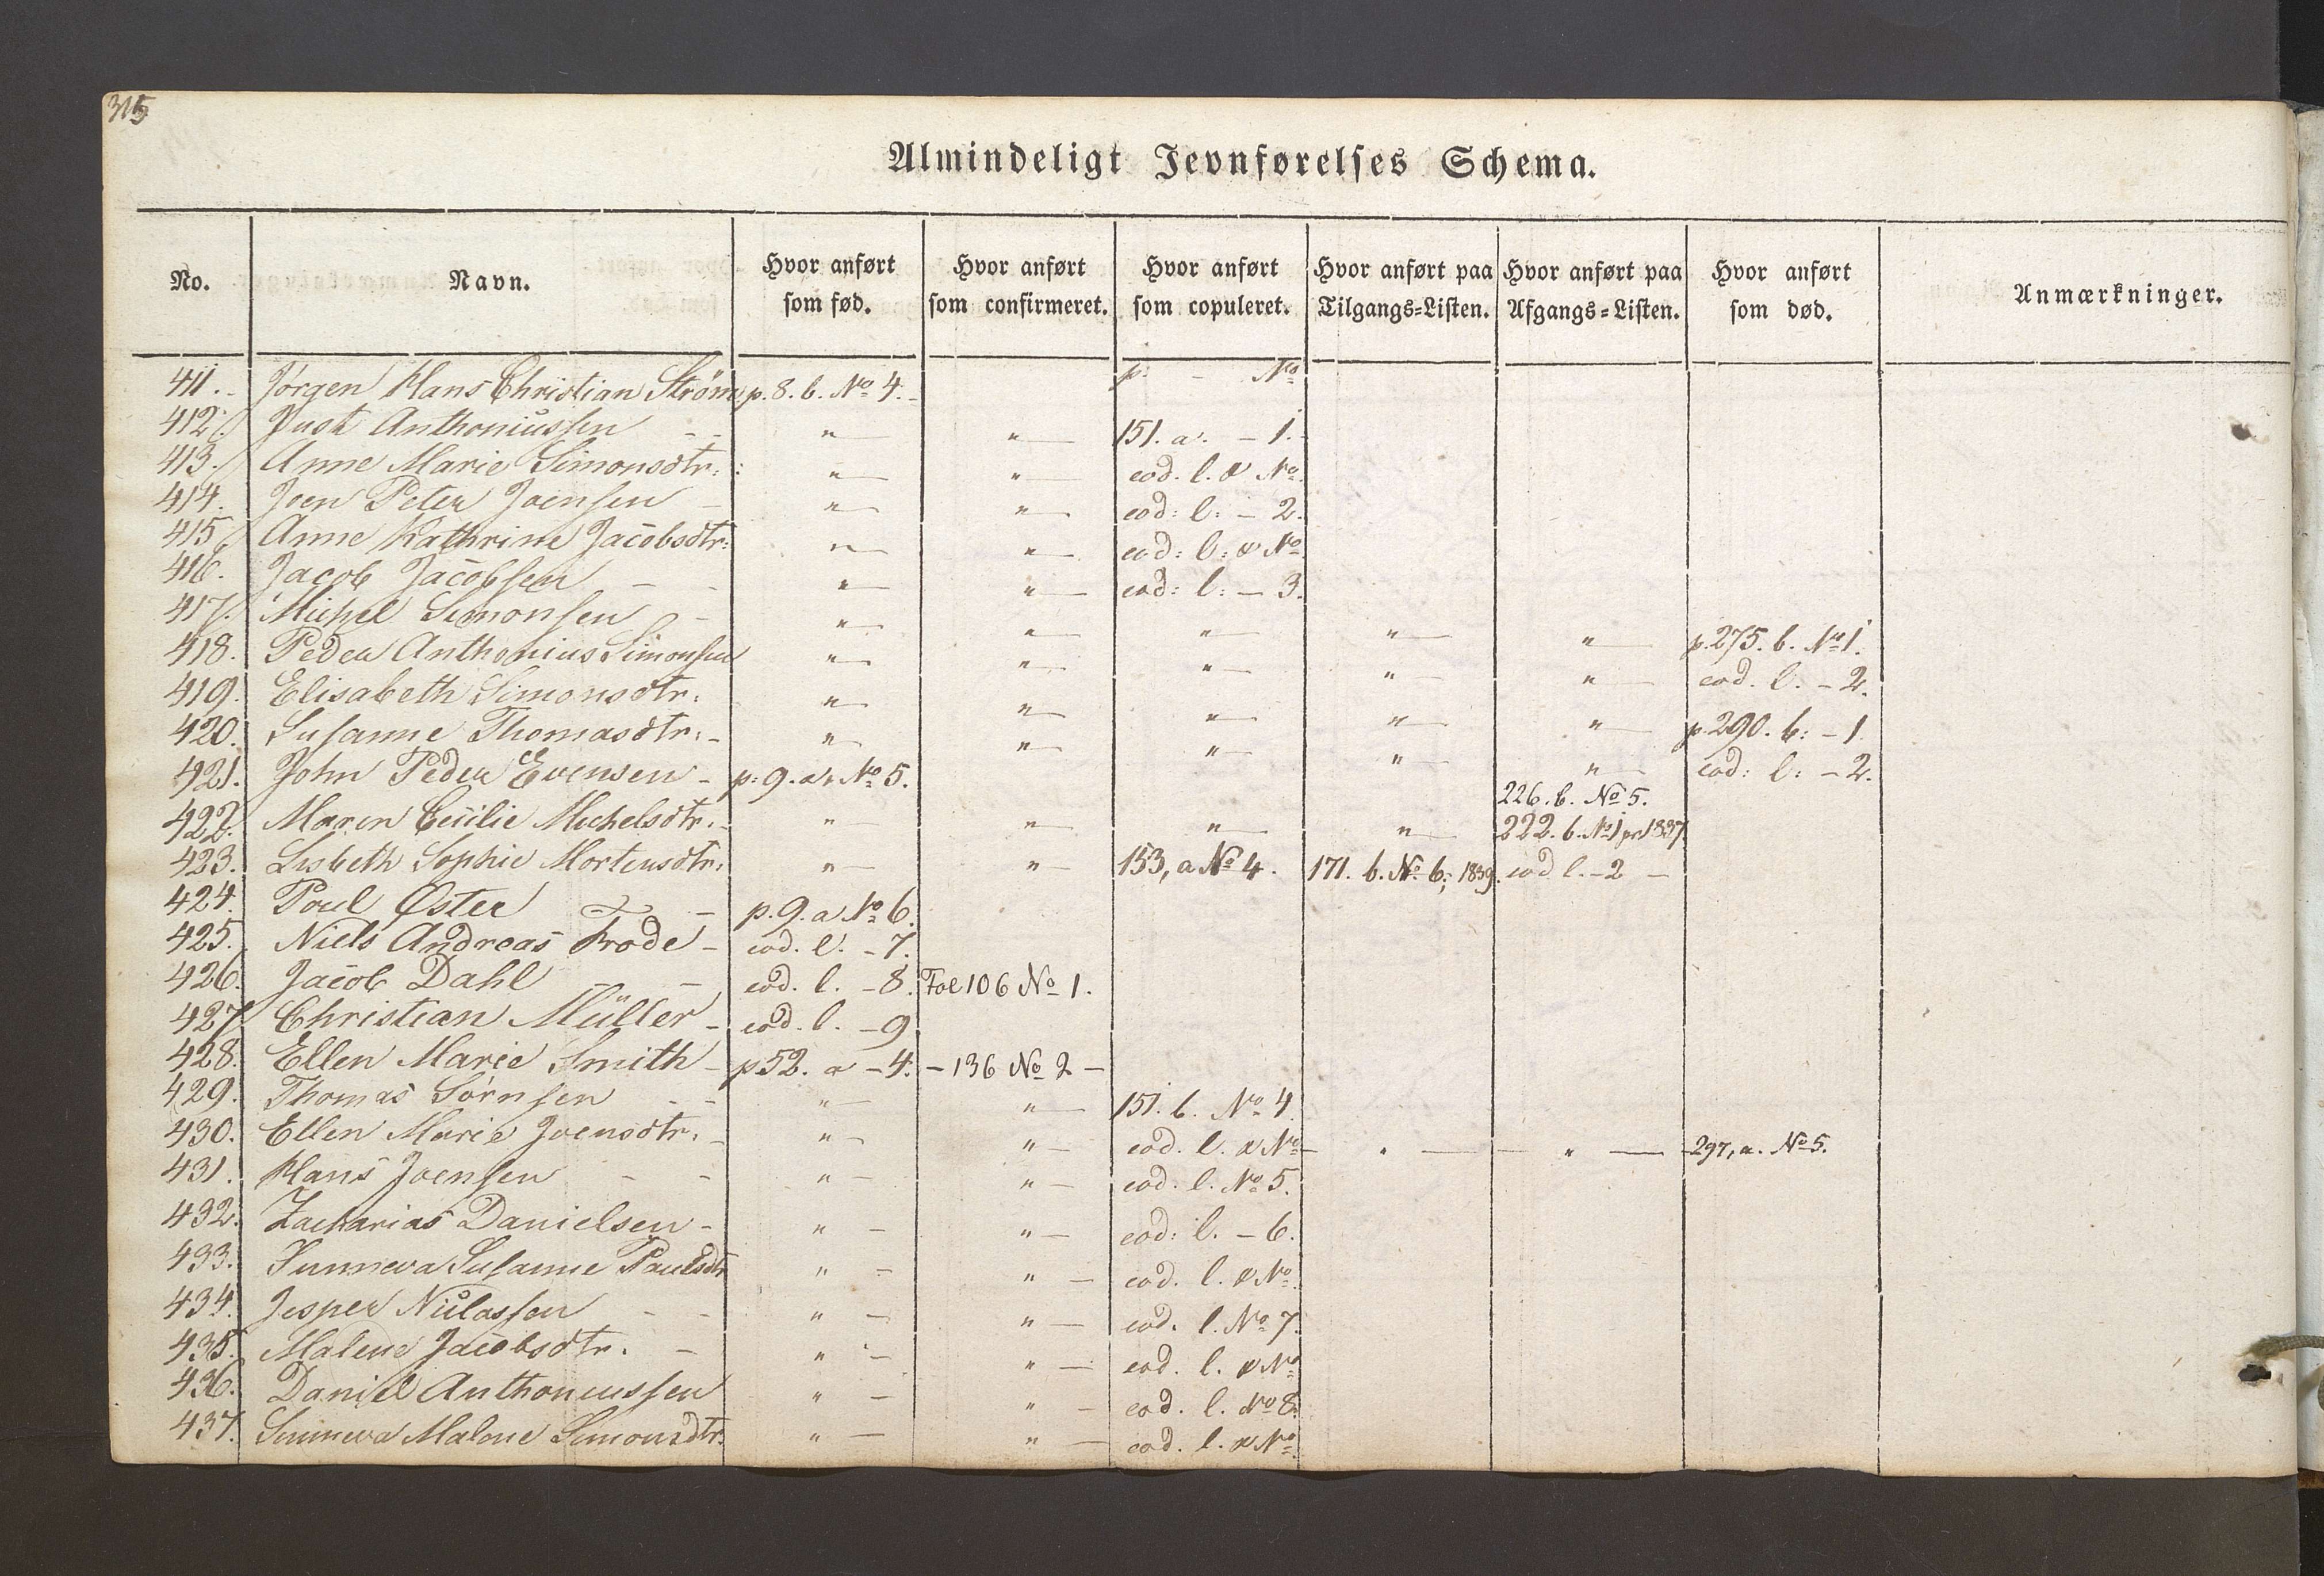 315
Almindeligt Jevnførelses Schema.
No. Navn. Hvor anført som fød. Hvor anført som confirmeret. Hvor anført som copuleret. Hvor anført paa Tilgangs-Listen. Hvor anført paa Afgangs-Listen. Hvor anført som død. Anmærkninger.
411. Jørgen Hans Christian Strøm p. 8. b. No 4. p. - No
412. Just Anthoniussen - - " " 151. a. - 1.
413. Anne Marie Simonsdtr. " " eod. l. & No
414. Joen Peter Joensen - " " eod: l: - 2.
415. Anne Kathrine Jacobsdtr: " " eod: l: & No
416. Jacob Jacobsen - - " " eod: l: - 3.
417. Michel Simonsen - " " " " " p. 275. b. No 1.
418. Peder Anthonius Simonsen " " " " " eod. l. - 2.
419. Elisabeth Simonsdtr. " " " " " p. 290. b: - 1
420. Susanne Thomasdtr. - " " " " " eod: l: - 2.
421. John Peder Evensen - p: 9. a. No 5. 226. b. No 5.
422. Maren Cecilie Michelsdtr. - " " " " 222. b. No 1 pr 1837.
423. Lisbeth Sophie Mortensdtr. " " 153, a No 4. 171. b. No 6; 1839. eod l. - 2 -
424. Poul Øster - p. 9. a No 6.
425. Niels Andreas Frode - eod. l. - 7.
426. Jacob Dahl - - eod. l. - 8. Fol 106 No 1.
427. Christian Müller - eod. l. - 9
428. Ellen Marie Smith - p 52. a - 4. - 136 No 2 -
429. Thomas Sørnsen - - " " 151. b. No 4.
430. Ellen Marie Joensdtr. - " " eod. l. & No - " - - " - 297, a. No 5.
431. Hans Joensen - - " " eod. l. No 5.
432. Zacharias Danielsen - " " eod: l. - 6.
433. Sunneva Susanne Paulsdtr " " eod. l. & No
434. Jesper Niclassen - - " " eod. l. No 7.
435. Malene Jacobsdtr. - " " eod. l. & No
436. Daniel Anthoniussen " " eod. l. No 8.
437. Sunneva Malene Simonsdtr. " " eod. l. & No